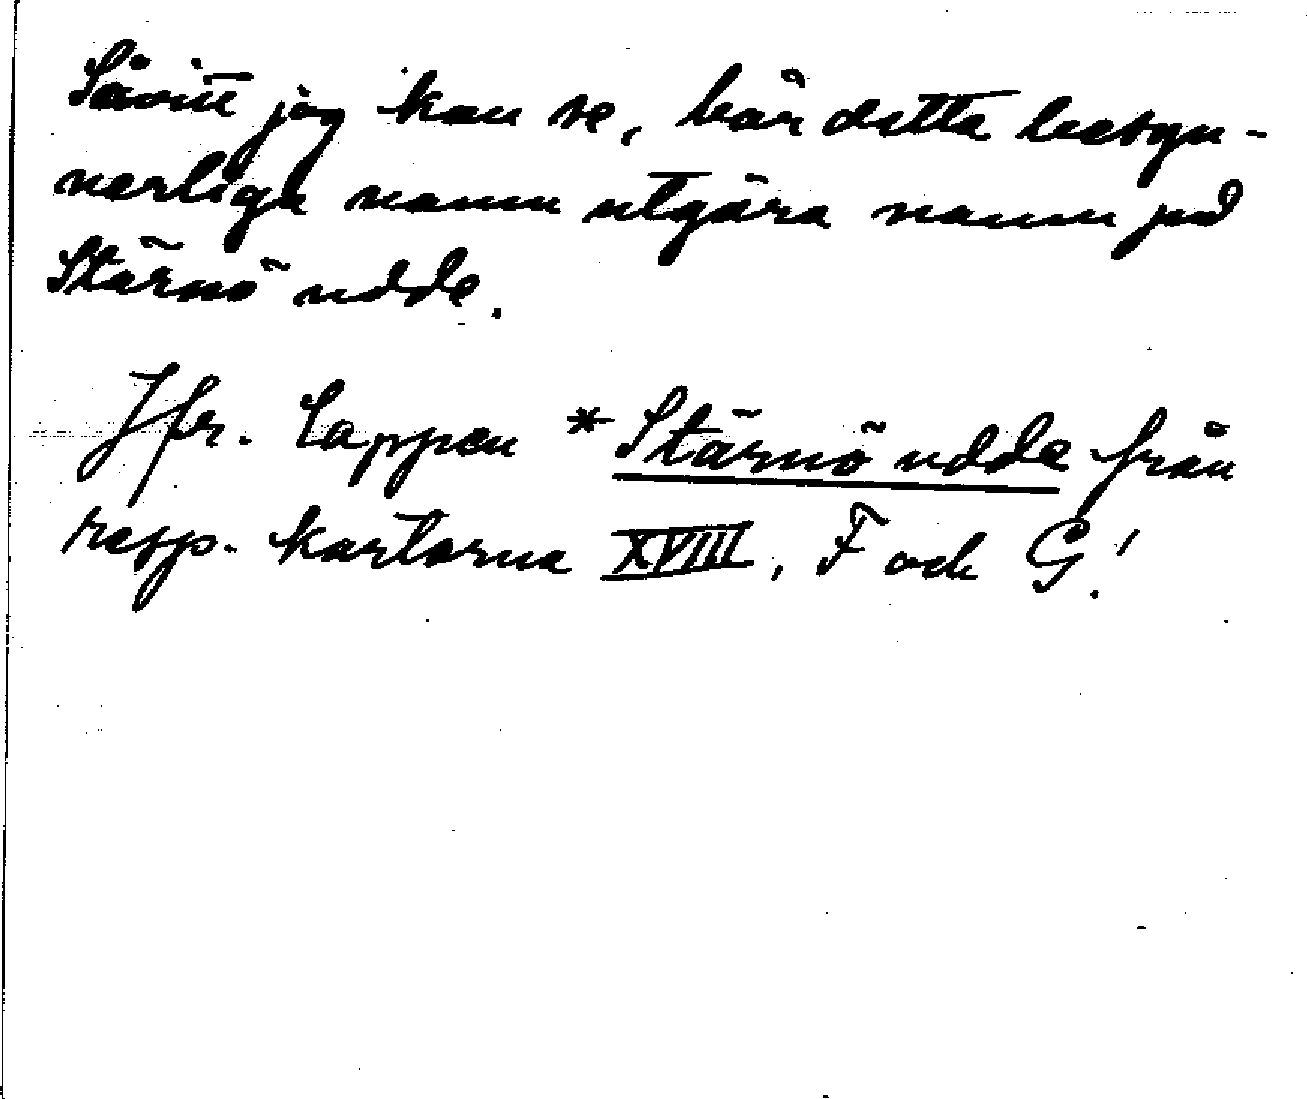 Såvitt jag kan se, bör detta besyn-
nerliga namn utgöra namn på
Stärnö udde.
Jfr. lappen *Stärnö udde från
resp. kartorna XVIII, F och G!